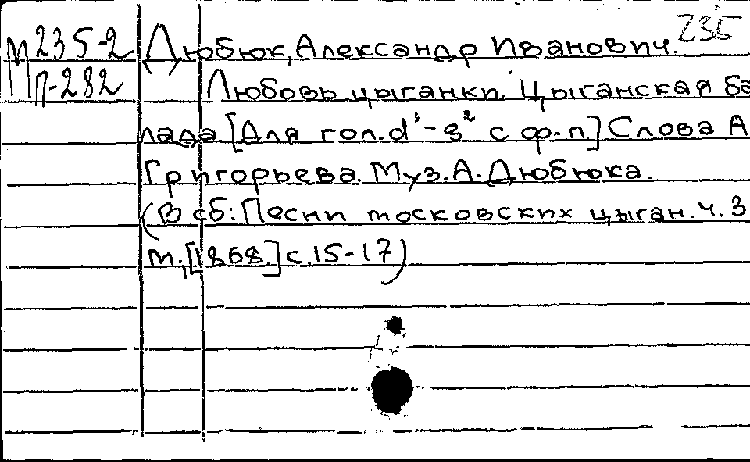 235
М 235-2 Дюбюк, Александр Иванович.
М п-282 Любовь цыганки. Цыганская ба
лада [Для гол. d¹-g² с ф-п.] Слова А
Григорьева. Муз. А. Дюбюка.
(В сб: Песни московских цыган. ч. 3
М., [1868.] с. 15-17)